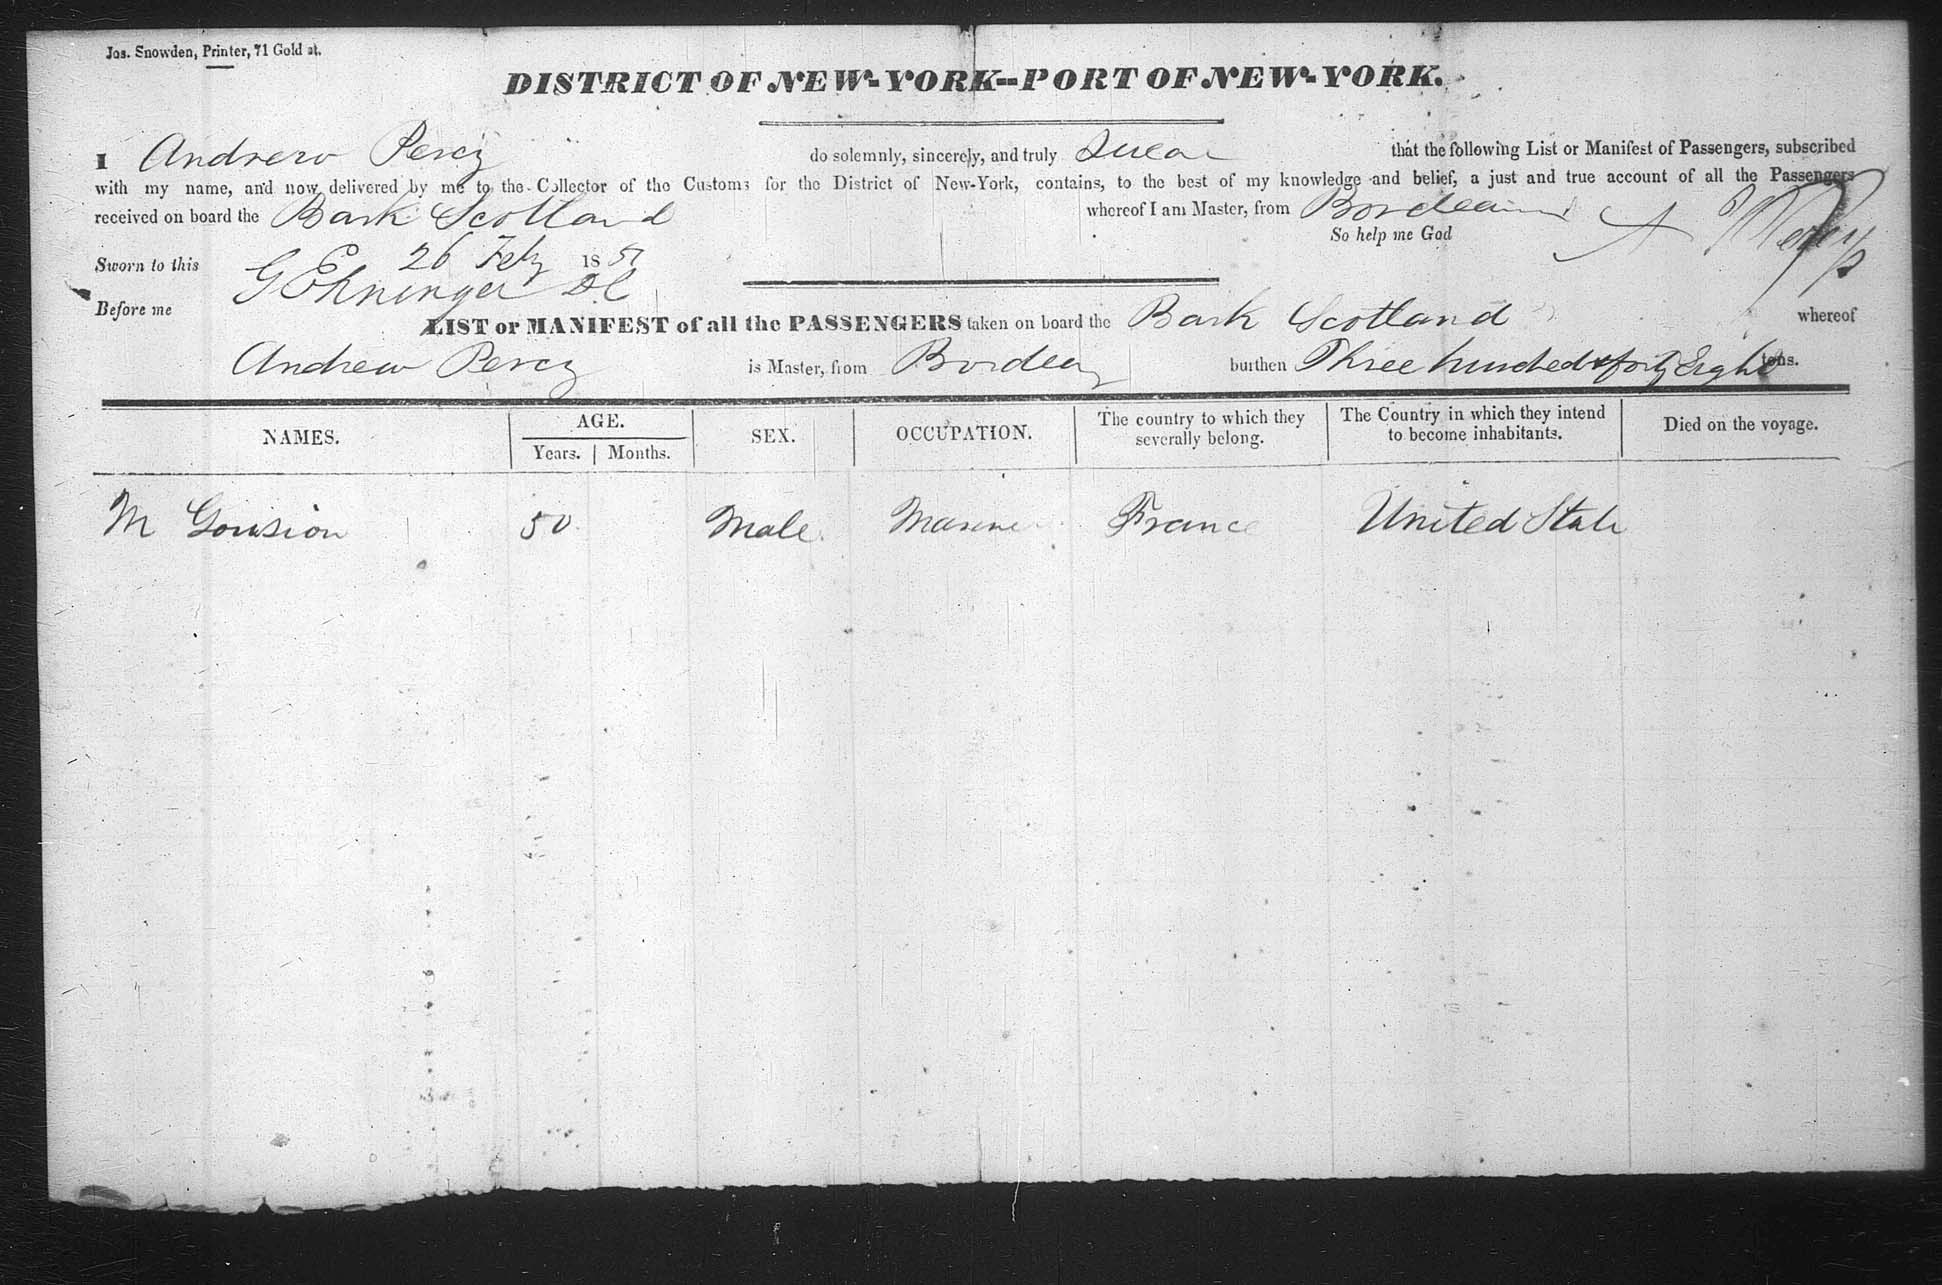 Jos. Snowden, Printer, 71 Gold st.
DISTRICT OF NEW-YORK--PORT OF NEW-YORK.
I Andrew Percy do solemnly, sincerely, and truly Swear that the following List or Manifest of Passengers, subscribed
with my name, and now delivered by me to the Collector of the Customs for the District of New-York, contains, to the best of my knowledge and belief, a just and true account of all the Passengers
received on board the Bark Scotland whereof I am Master, from Bordeaux
So help me God
Sworn to this 26 Feby 1851
Before me G Ehninger DC
LIST or MANIFEST of all the PASSENGERS taken on board the Bark Scotland whereof
Andrew Percy is Master, from Bordeaux burthen Three hundred & forty Eight tons.
NAMES. AGE. Years. Months. SEX. OCCUPATION. The country to which they severally belong. The Country in which they intend to become inhabitants. Died on the voyage.
M 50 Male Mariner France United State